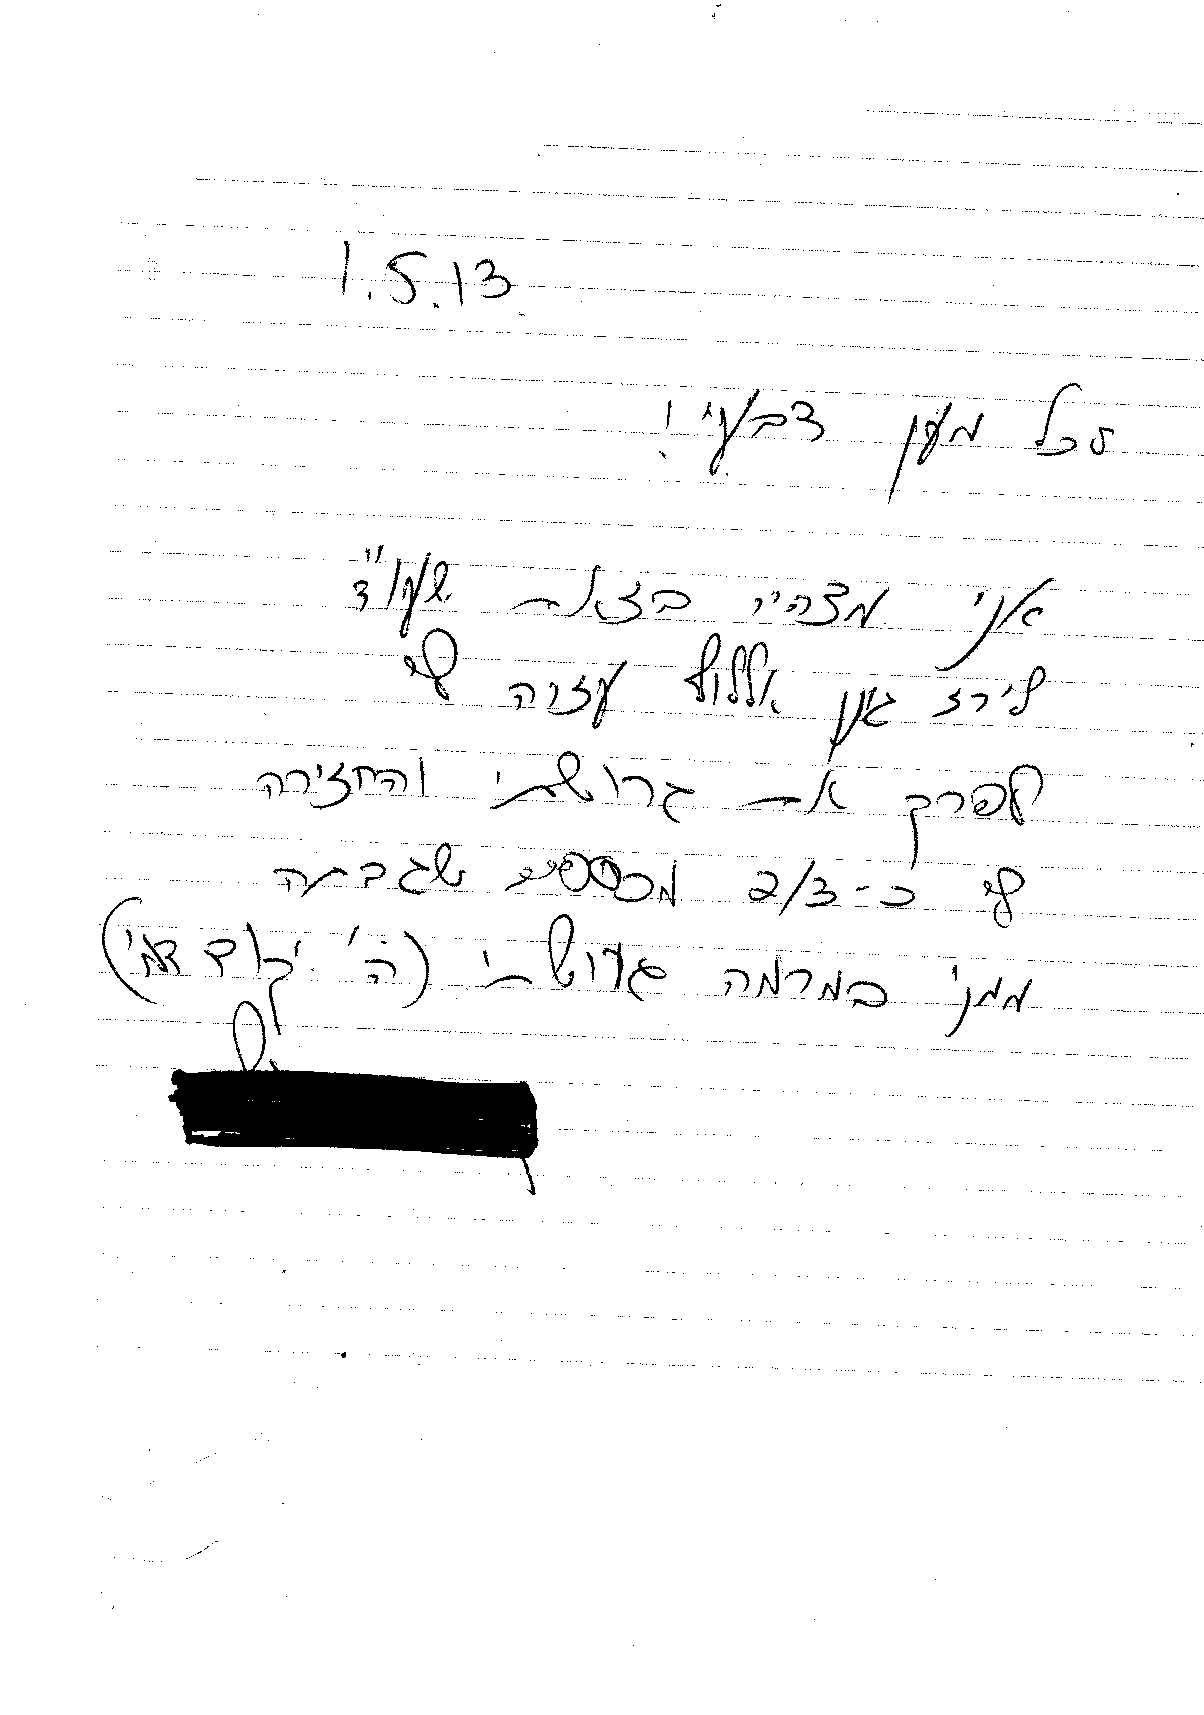 1.5.13
לכל מען דבעי!
אני מצהיר בזאת שעו"ד
לירז ג'אן אללוף עזרה לי
לפרק את גרושתי והחזירה
לי כ-2/3 מכספים שגבתה
ממני במרמה גרושתי (ה'